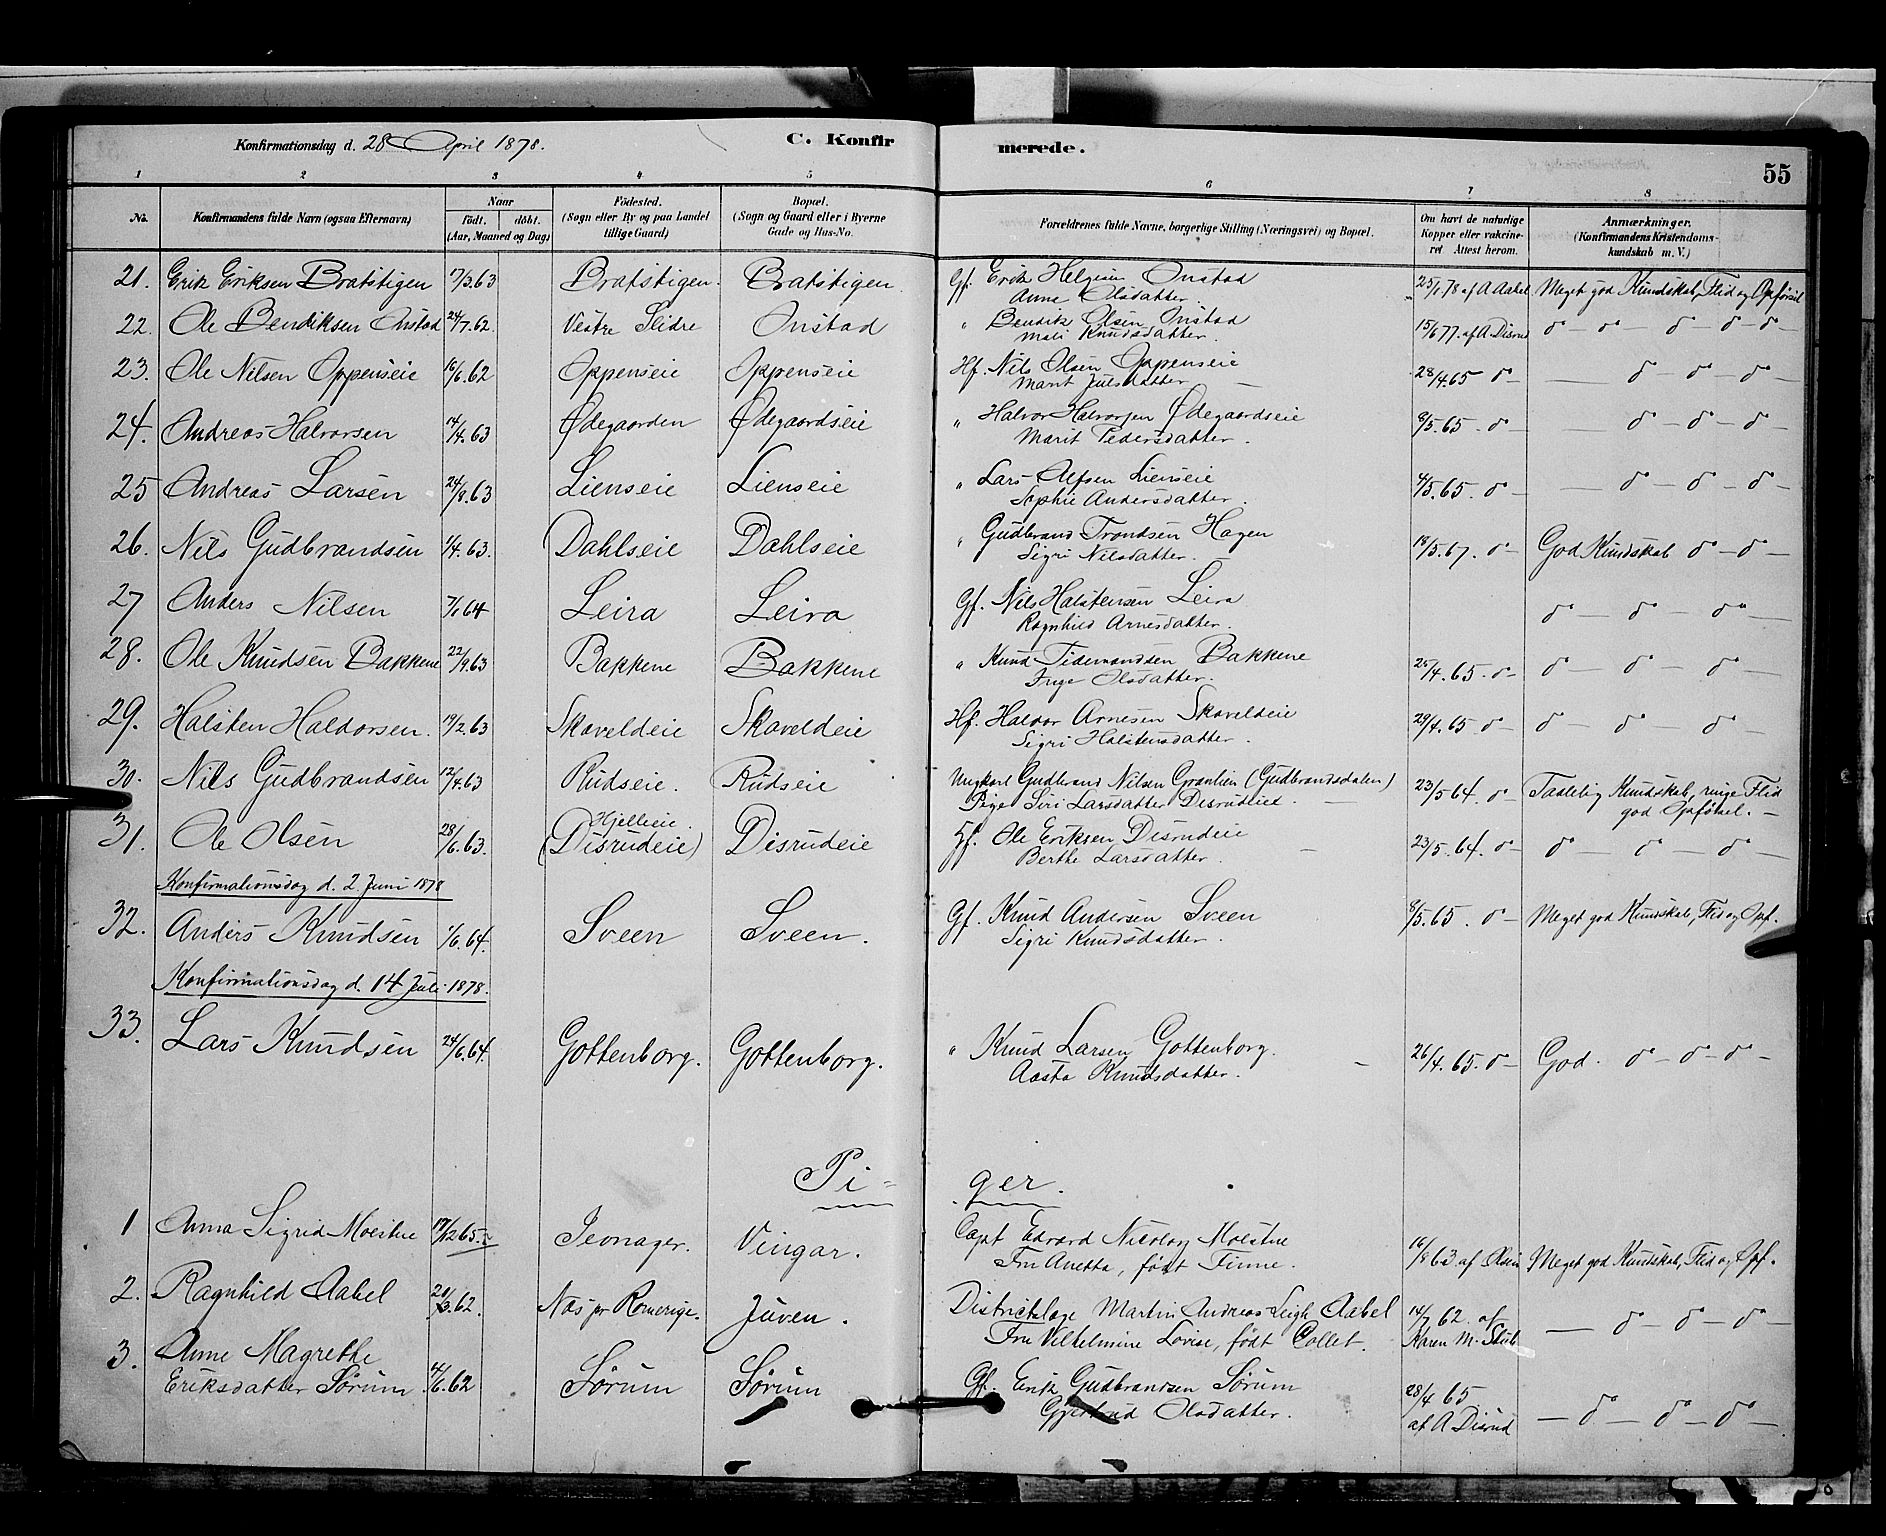 Konfirmationsdag d. 28 April 1878.
C. Konfirmerede.
55
1 2 3 4 5 6 7 8
No. Konfirmandens fulde Navn (ogsaa Efternavn) Naar født. døbt. (Aar, Maaned og Dag) Fødested. (Sogn eller By og paa Landet tillige Gaard) Bopæl. (Sogn og Gaard eller i Byerne Gade og Hus-No. Forældrenes fulde Navne, borgerlige Stilling (Næringsvei) og Bopæl. Om havt de naturlige Kopper eller vakcineret Attest herom. Anmærkninger. (Konfirmandens Kristendomskundskab m. V.)
21. Erik Eriksen Bratstigen 17/3.63 Bratstigen. Bratstigen. Gf. Erik Helgesen Onstad 25/1.78 af A Aabel Meget god Kundskab, Flid og Opførsel
Anne Olsdatter.
22. Ole Bendiksen Onstad 24/7.62. Vestre Slidre Onstad " Bendik Olsen Onstad 15/6 77. af A. Disrud do — do — do — do — do —
Mali Knudsdatter.
23. Ole Nilsen Oppenseie 16/6.62 Oppenseie Oppenseie Hf. Nils Olsen Oppenseie 28/4.65 do — — do — do — do —
Marit Julsdatter —
24. Andreas Halvorsen 14/4.63 Ødegaarden Ødegaardseie " Halvor Halvorsen Ødegaardseie 9/5.65. do — — do — do — do —
Marit Pedersdatter.
25 Andreas Larsen 24/8.63 Lienseie Lienseie " Lars Alfsen Lienseie 4/5.65. do — — do — do — do —
Sophie Andersdatter.
26. Nils Gudbrandsen 1/4.63. Dahlseie Dahlseie " Gudbrand Trondsen Hagen 18/5.67. do — God Kundskab do — do —
Sigri Nilsdatter. —
27 Anders Nilsen 7/1 64 Leira Leira Gf. Nils Halstensen Leira do — do — do —
Ragnhild Arnesdatter.
28. Ole Knudsen Bakkene 22/9.63 Bakkene Bakkene " Knud Tidemandsen Bakkene 25/4.65. do — do — do — do —
Inge Olsdatter.
29. Halsten Haldorsen. 19/2.63 Skaveldeie Skaveldeie Hf. Haldor Arnesen Skaveldeie 29/4.65 do — do — do — do —
Sigri Halstensdatter.
30. Nils Gudbrandsen 12/4.63 Rudseie. Rudseie Ungkarl Gudbrand Nilsen Granlien (Gudbrandsdalen) 23/5 64. do — Taalelig Kundskab, ringe Flid
Pige Siri Larsdatter Disrudeiet. — god Opførsel. —
31. Ole Olsen 28/6.63. Hjelleeie. (Disrudeie) Disrudeie Hf. Ole Eriksen Disrudeie 23/5.64. do — do — do — do —
Berthe Larsdatter. —
Konfirmationsdag d. 2 Juni 1878
32. Anders Knudsen 1/6.64. Sveen Sveen. Gf. Knud Andersen Sveen 8/5.65. do — Meget god Kundskab, Flid og Opf.
Sigri Knudsdatter.
Konfirmationsdag d. 14 Juli 1878.
33. Lars Knudsen 24/6.64. Gottenborg. Gottenborg. " Knud Larsen Gottenborg. 26/4.65. do — God. do — do — do —
Aasta Knudsdatter. —
Pi- ger.
1 Anna Sigrid Moestue 17/12 65. Jevnager. Vingar. Capt Edvard Nicolay Moestue 16/8 63 af Meget god Kundskab, Flid og Opf.
Fru Anetta, født Finne.
2. Ragnhild Aabel 20/3.62. Nas pr Romerige. Juven. Districtslæge Martin Andreas Leigh Aabel 14/7 62. af — do — do — do —
Fru Vilhelmine Lovise, født Collet. Karen M.
3. Anne Magrethe
Eriksdatter Sørum 4/6.62 Sørum Sørum Gf. Erik Gudbrandsen Sørum 28/4 65 — do — do — do —
Gjertrud Olsdatter. af A Disrud